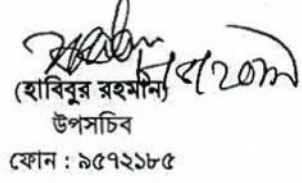 (হাবিবুর রহমান)
উপসচিব
ফোন : ৯৫৭২১৮৫